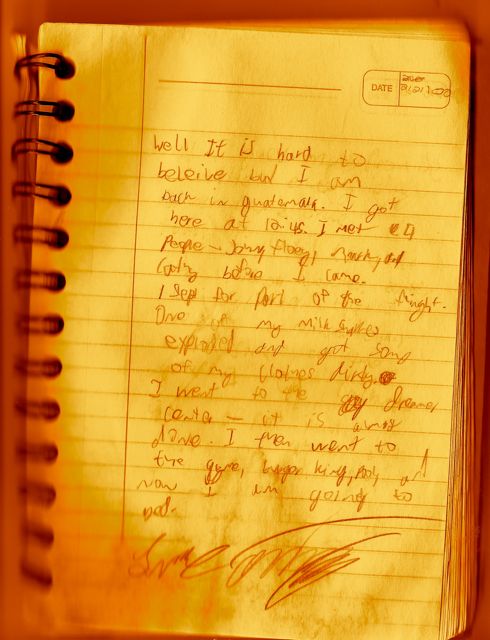 DATE
Well It is hard to
beleive but I am
back in guatemala. I got
here at 10:45. I met 4
People - 
before I came.
I slept for part of the flight.
One of my milk shakes
exploded and got some
of my clothes dirty.
I went to the dreamer
center - it is almost
done. I then went to
the gym, burger king, pool, and
now I am going to
bed.